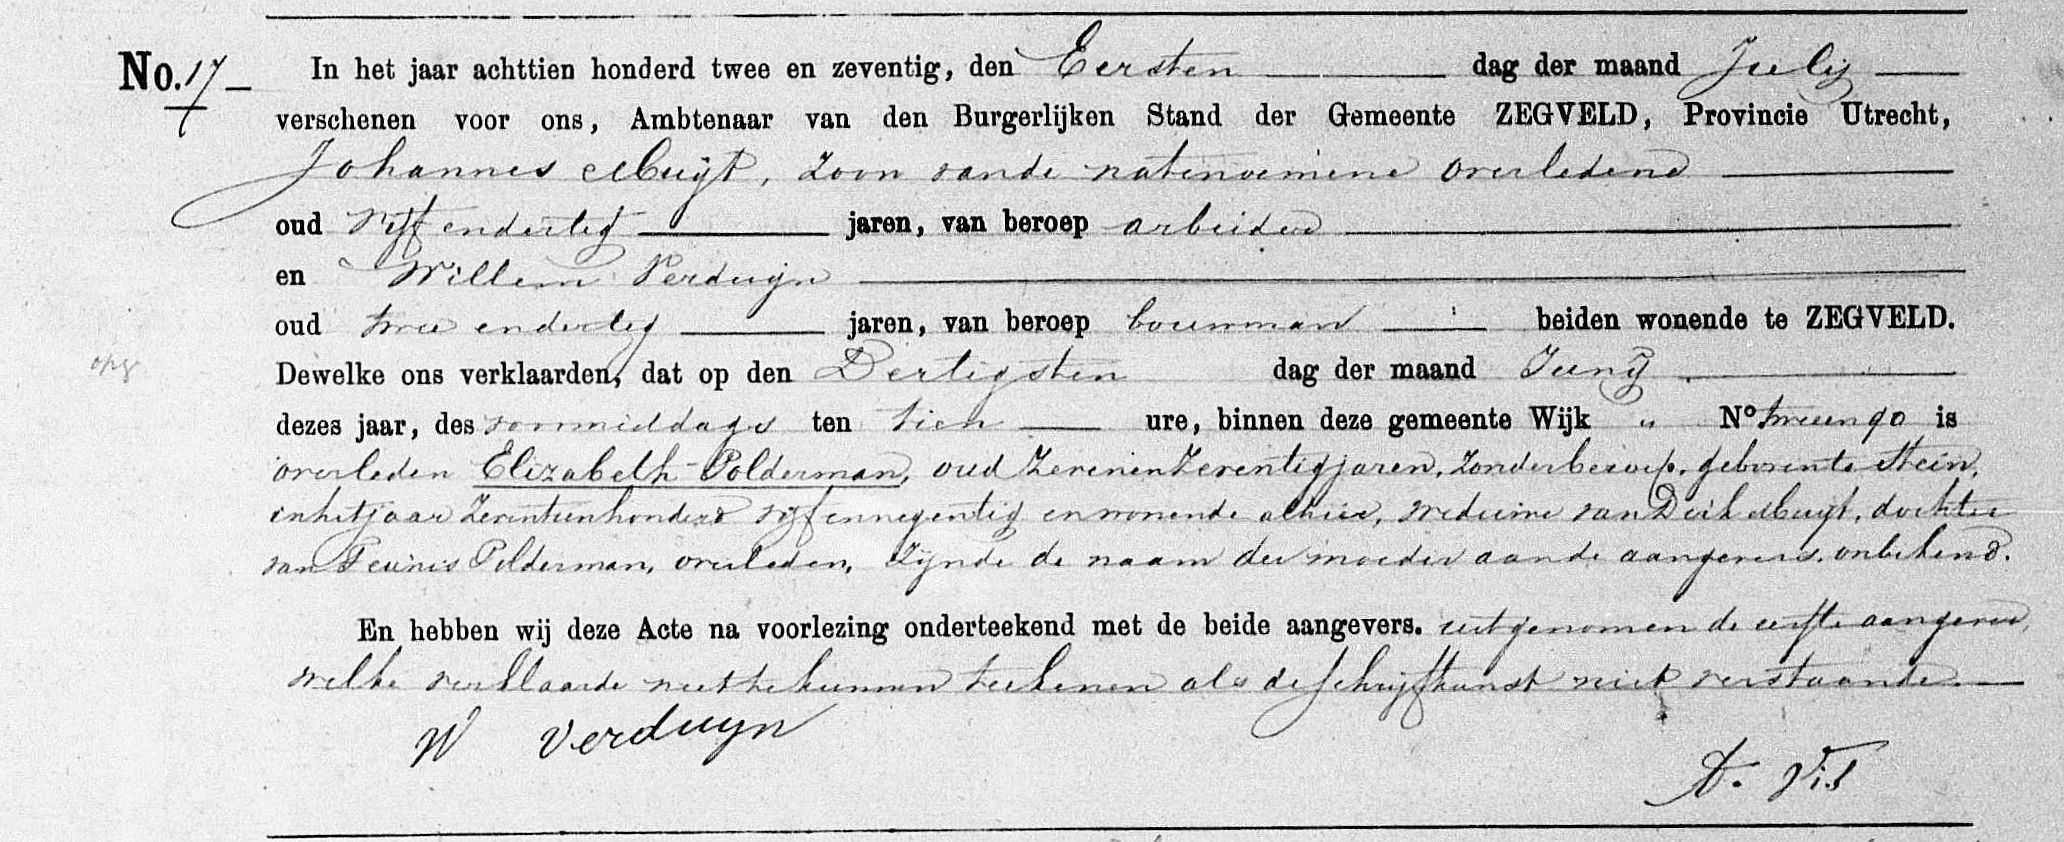 No. 17 In het jaar achttien honderd twee en zeventig, den Eersten dag der maand Julij
verschenen voor ons, Ambtenaar van den Burgerlijken Stand der Gemeente ZEGVELD, Provincie Utrecht,
Johannes Muijt, zoon van de natenoemene overledene
oud vijf en dertig jaren, van beroep arbeider
en Willem Verduijn
oud twee en dertig jaren, van beroep bouwman beiden wonende te ZEGVELD.
Dewelke ons verklaarden, dat op den Dertigsten dag der maand Junij
dezes jaar, des voormiddags ten tien ure, binnen deze gemeente Wijk " No tweeen90 is
overleden Elizabeth Polderman, oud zevenenzeventig jaren, zonder beroep, geboren te Stein,
in het jaar zeventienhonderd vijf en negentig en wonende alhier, weduwe van Dirk Muijt, dochter
van Teunis Polderman, overleden, zijnde de naam der moeder aan de aangevers onbekend.
En hebben wij deze Acte na voorlezing onderteekend met de beide aangevers. uitgenomen de eerste aangever,
welke verklaarde niet te kunnen teekenen als de schrijfkunst niet verstaande.
W Verduyn
A. Vis